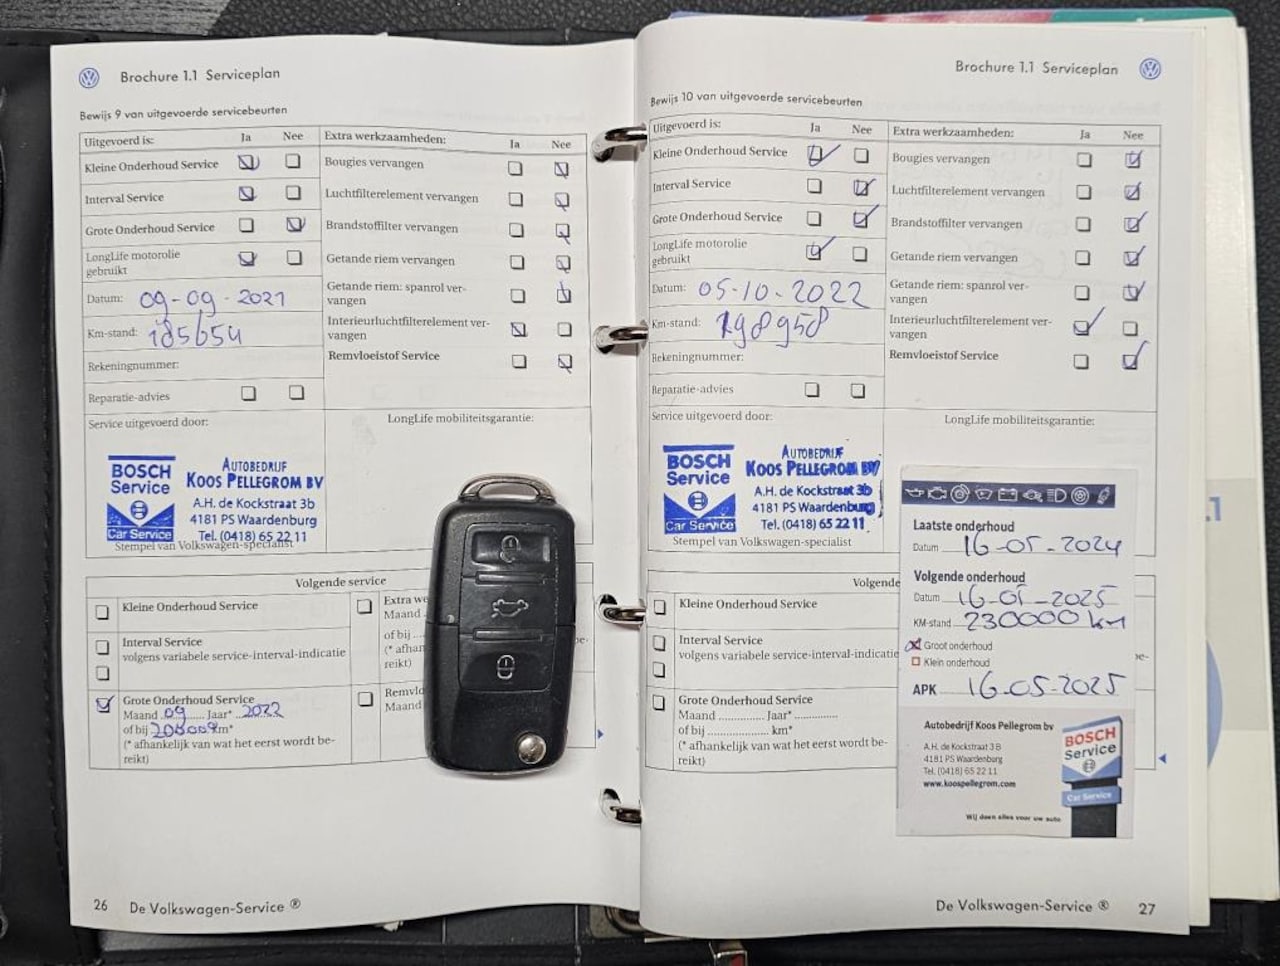 Brochure 1.1 Serviceplan
Bewijs 9 van uitgevoerde servicebeurten
Uitgevoerd is: Ja Nee
Kleine Onderhoud Service
Interval Service
Grote Onderhoud Service
LongLife motorolie
gebruikt
Datum: 09-09-2021
Km-stand: 185654
Rekeningnummer:
Reparatie-advies
Extra werkzaamheden: Ja Nee
Bougies vervangen
Luchtfilterelement vervangen
Brandstoffilter vervangen
Getande riem vervangen
Getande riem: spanrol ver-
vangen
Interieurluchtfilterelement ver-
vangen
Remvloeistof Service
Service uitgevoerd door:
LongLife mobiliteitsgarantie:
BOSCH
Service
Car Service
AUTOBEDRIJF
KOOS PELLEGROM BV
A.H. de Kockstraat 3b
4181 PS Waardenburg
Tel. (0418) 65 22 11
Stempel van Volkswagen-specialist
Volgende service
Kleine Onderhoud Service
Interval Service
volgens variabele service-interval-indicatie
Grote Onderhoud Service
Maand 09 Jaar* 2022
of bij km*
(* afhankelijk van wat het eerst wordt be-
reikt)
Extra we
Maand
of bij
(* afhan
reikt)
Remvlo
Maand
26 De Volkswagen-Service ®
Brochure 1.1 Serviceplan
Bewijs 10 van uitgevoerde servicebeurten
Uitgevoerd is: Ja Nee
Kleine Onderhoud Service
Interval Service
Grote Onderhoud Service
LongLife motorolie
gebruikt
Datum: 05-10-2022
Km-stand: 198958
Rekeningnummer:
Reparatie-advies
Extra werkzaamheden: Ja Nee
Bougies vervangen
Luchtfilterelement vervangen
Brandstoffilter vervangen
Getande riem vervangen
Getande riem: spanrol ver-
vangen
Interieurluchtfilterelement ver-
vangen
Remvloeistof Service
Service uitgevoerd door:
LongLife mobiliteitsgarantie:
BOSCH
Service
Car Service
AUTOBEDRIJF
KOOS PELLEGROM BV
A.H. de Kockstraat 3b
4181 PS Waardenburg
Tel. (0418) 65 22 11
Stempel van Volkswagen-specialist
Volgende
Kleine Onderhoud Service
Interval Service
volgens variabele service-interval-indicatie
Grote Onderhoud Service
Maand Jaar*
of bij km*
(* afhankelijk van wat het eerst wordt be-
reikt)
Laatste onderhoud
Datum 16-05-2024
Volgende onderhoud
Datum 16-05-2025
KM-stand 230000 km
Groot onderhoud
Klein onderhoud
APK 16-05-2025
Autobedrijf Koos Pellegrom bv
A.H. de Kockstraat 3B
4181 PS Waardenburg
Tel. (0418) 65 22 11
www.koospellegrom.com
BOSCH
Service
Car Service
Wij doen alles voor uw auto
De Volkswagen-Service ® 27